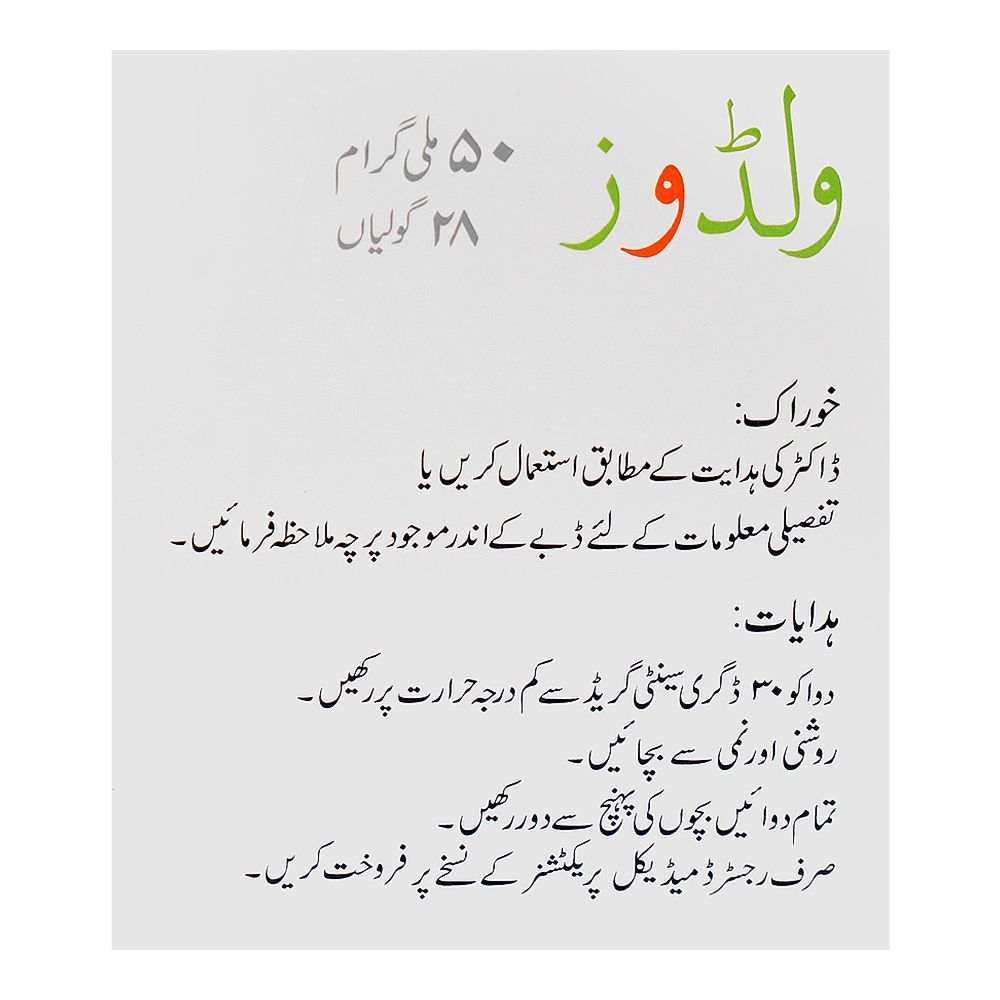 ولڈوز
۵۰ ملی گرام
۲۸ گولیاں
خوراک:
ڈاکٹر کی ہدایت کے مطابق استعمال کریں یا
تفصیلی معلومات کے لئے ڈبے کے اندر موجود پرچہ ملاحظہ فرمائیں۔
ہدایات:
دوا کو ۳۰ ڈگری سینٹی گریڈ سے کم درجہ حرارت پر رکھیں۔
روشنی اور نمی سے بچائیں۔
تمام دوائیں بچوں کی پہنچ سے دور رکھیں۔
صرف رجسٹرڈ میڈیکل پریکٹشنر کے نسخے پر فروخت کریں۔